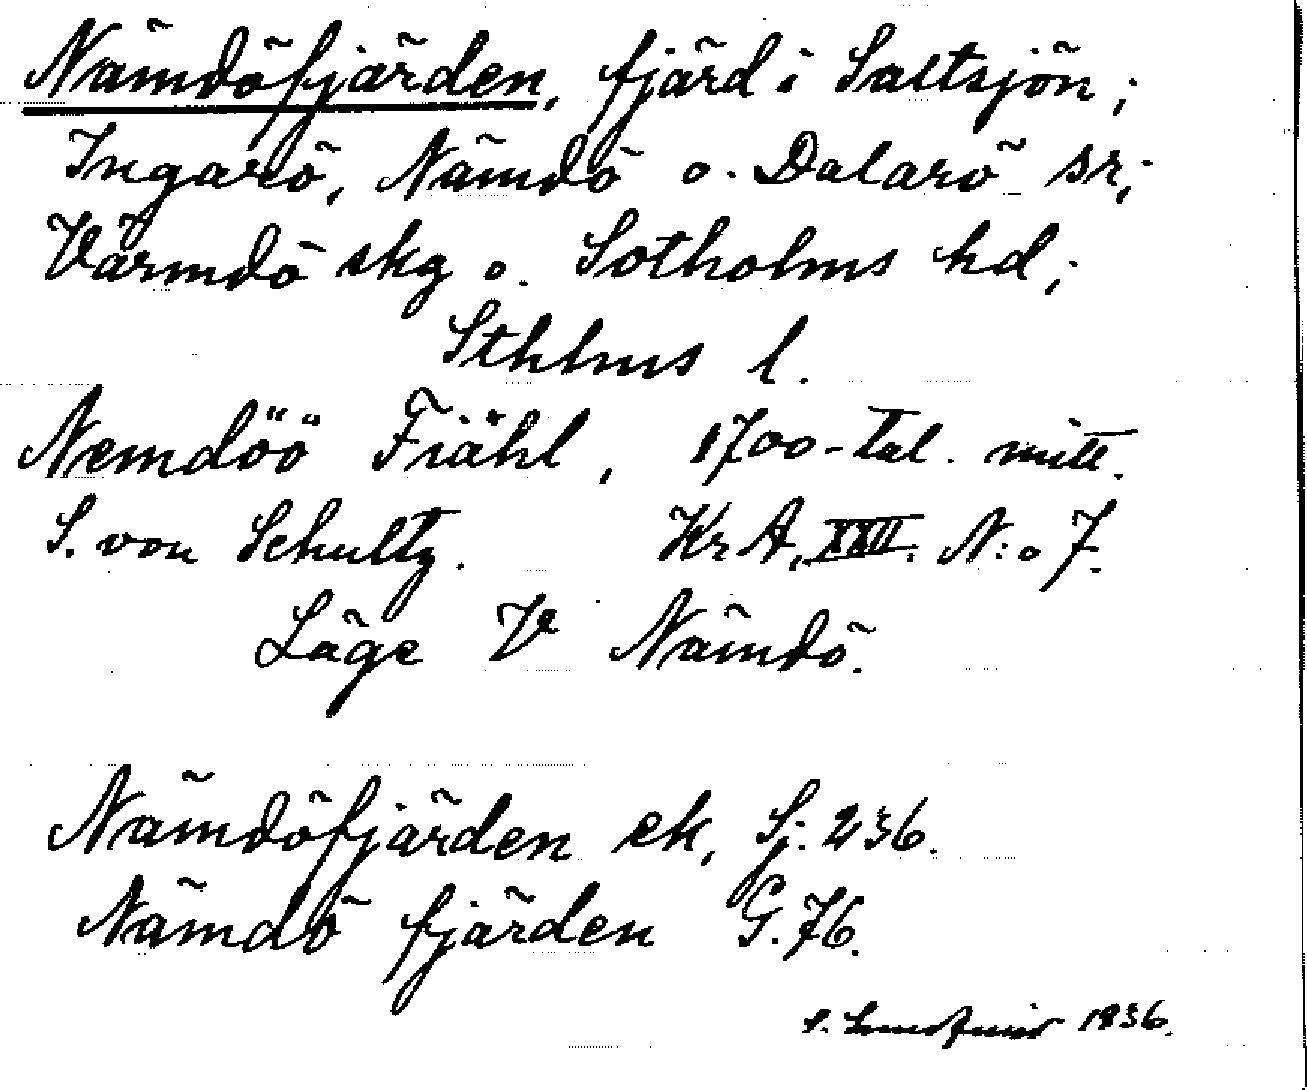 Nämdöfjärden, fjärd i Saltsjön;
Ingarö, Nämdö o. Dalarö sr;
Värmdö skg o. Sotholms hd;
Sthlms l.
Nemdöö Fiähl, 1700-tal. mitt.
S. von Schultz. KrA, XXII. N:o 7.
Läge V Nämdö.
Nämdöfjärden ek, Sj: 236.
Nämdö fjärden G. 76.
1936.